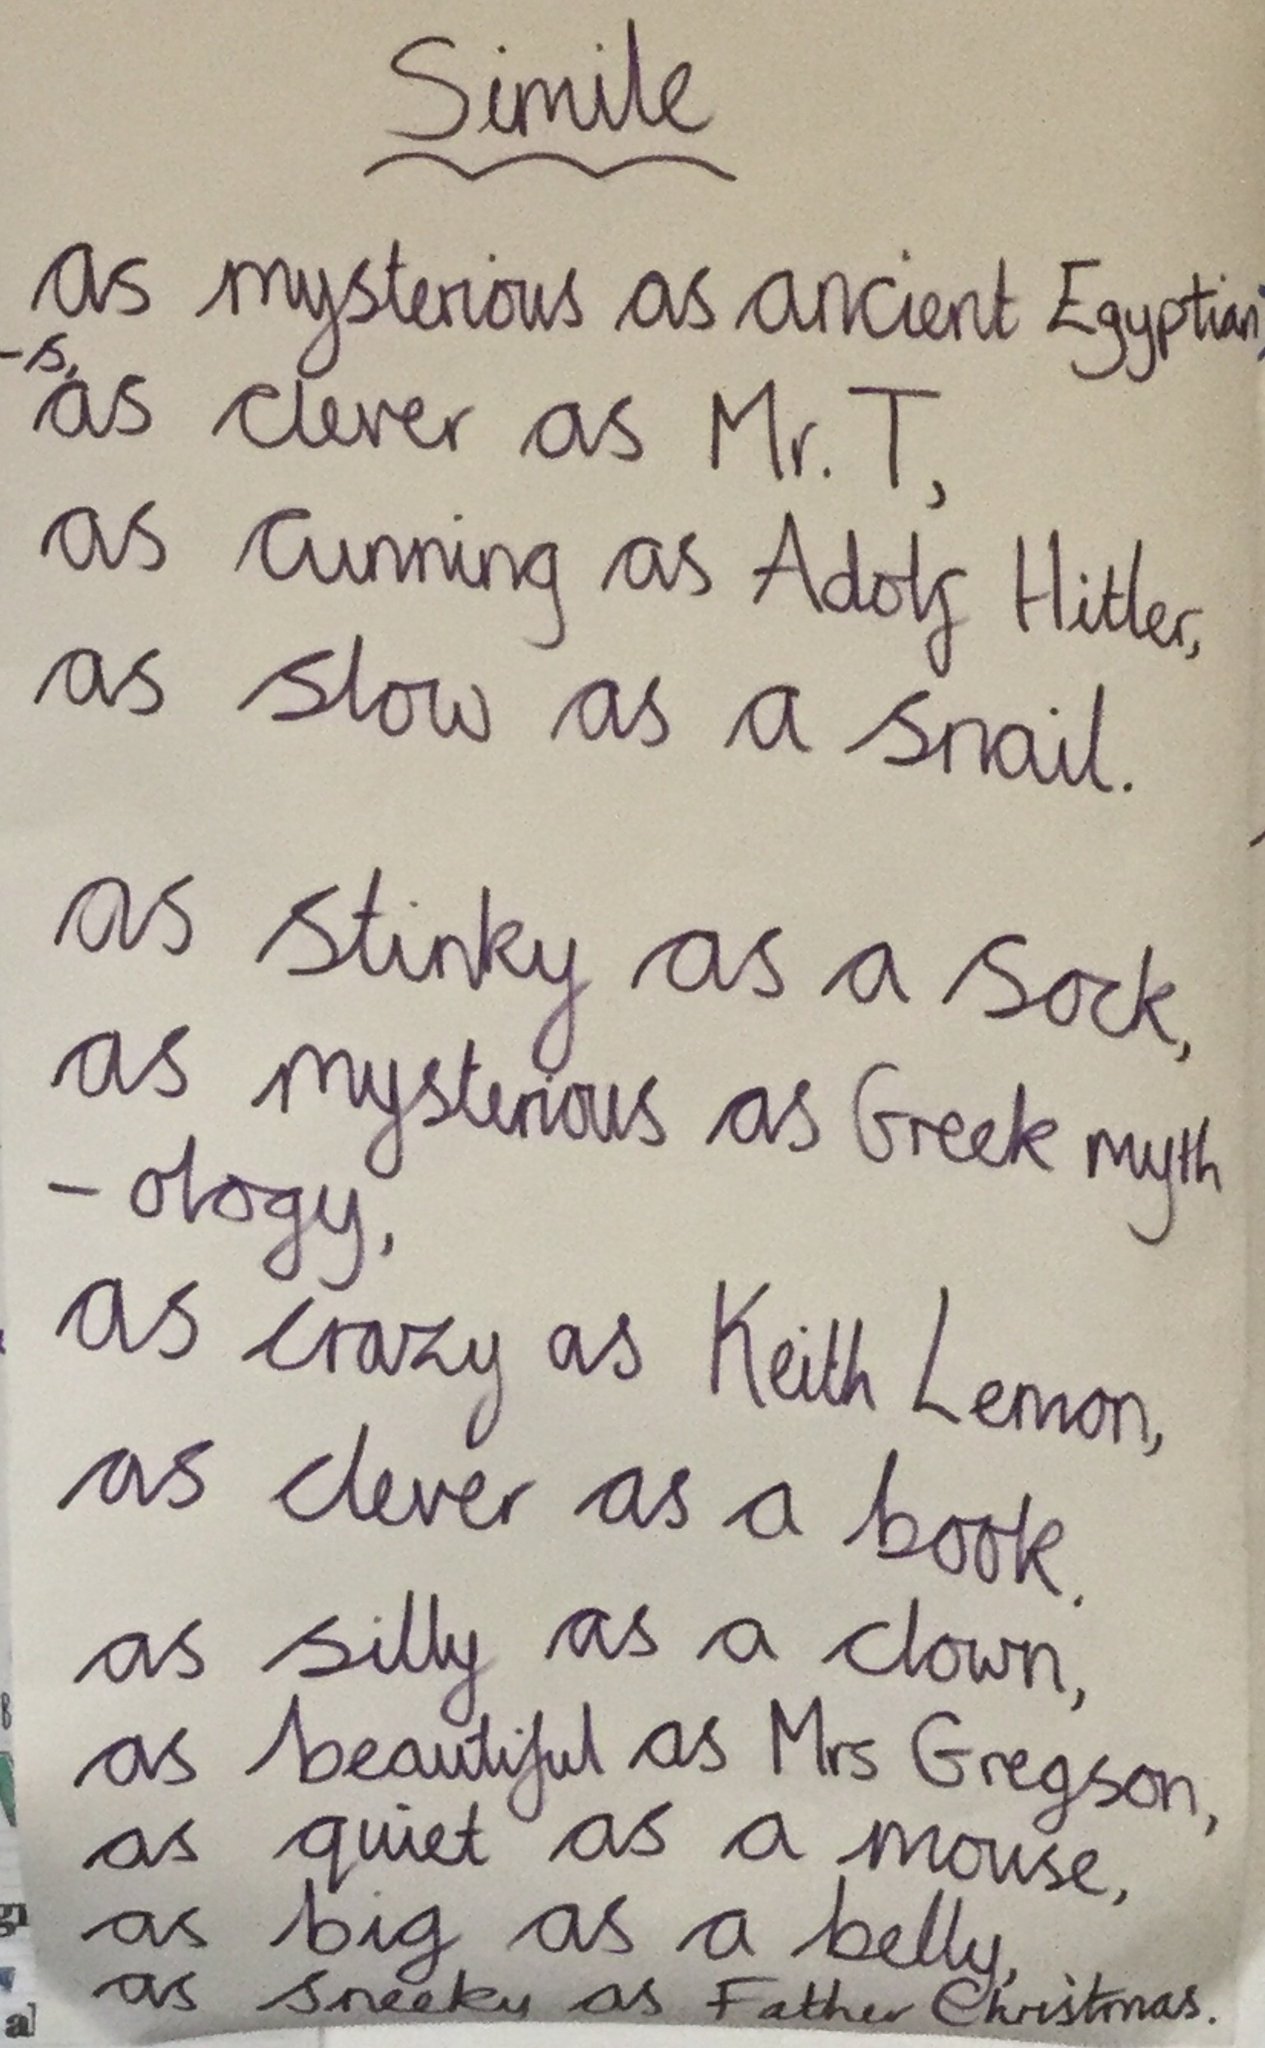 Simile
as mysterious as ancient Egyptian
-s,
as clever as Mr. T,
as cunning as Adolf Hitler,
as slow as a snail.
as stinky as a sock,
as mysterious as Greek myth
-ology,
as crazy as Keith Lemon,
as clever as a book.
as silly as a clown,
as beautiful as Mrs Gregson,
as quiet as a mouse,
as big as a belly,
as sneeky as Father Christmas.